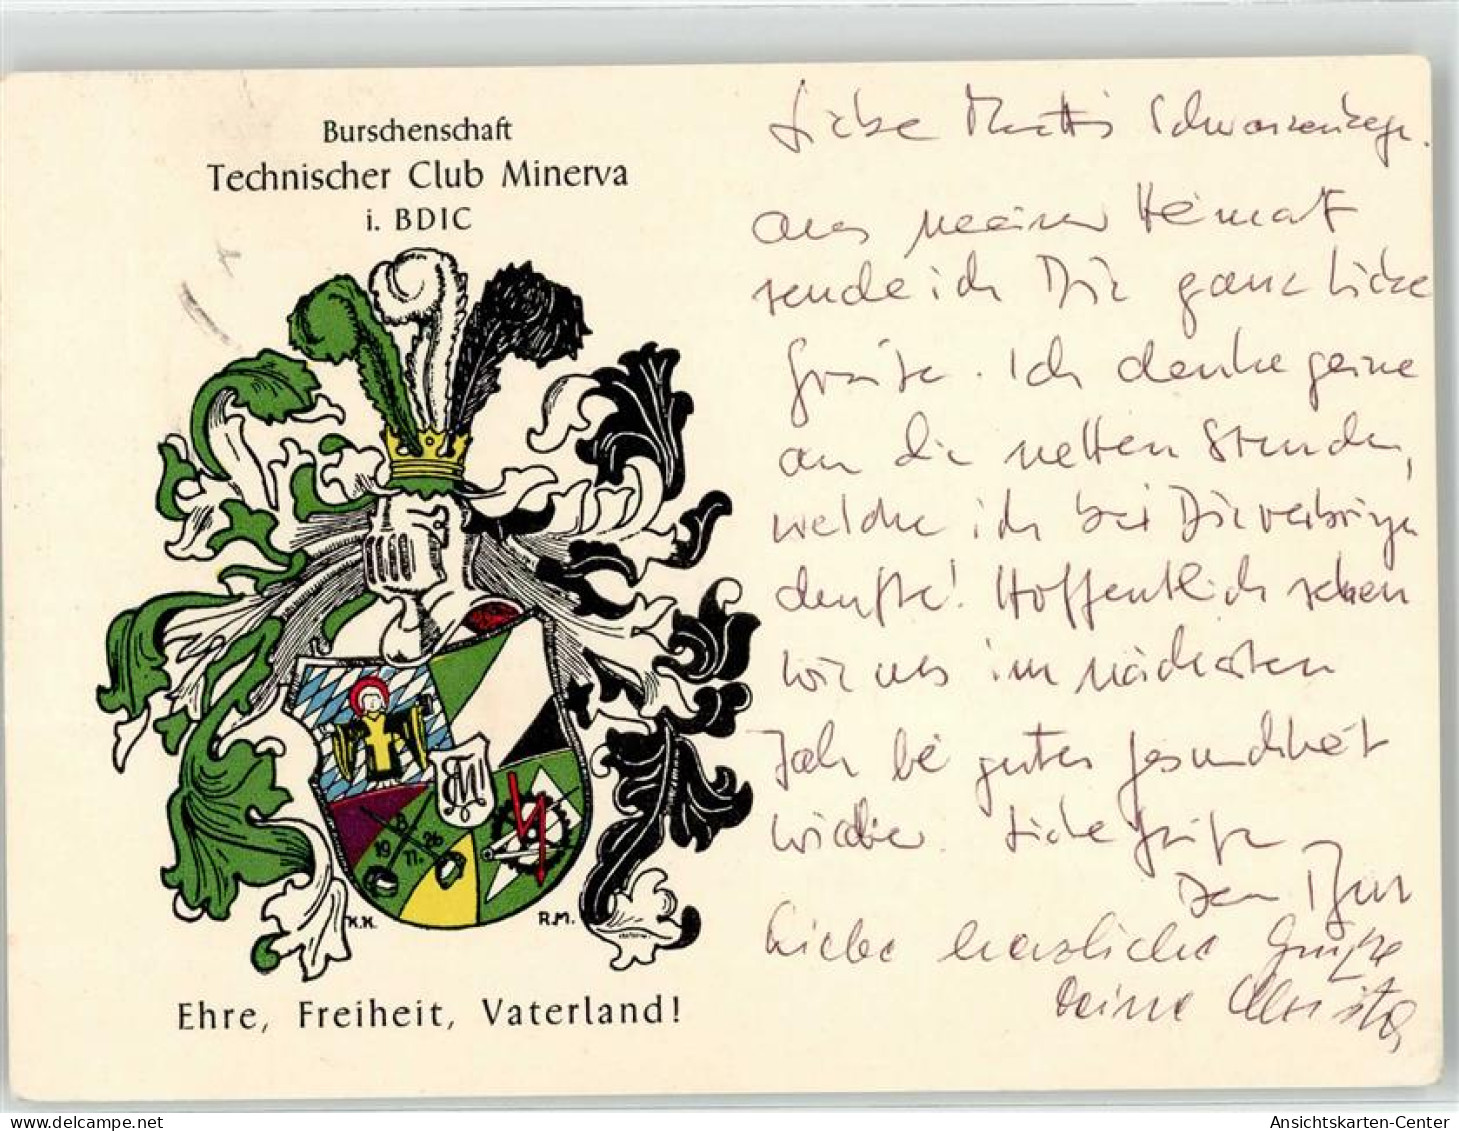 Burschenschaft
Technischer Club Minerva
i. BDIC
K.K.
R.M.
19 11. 26
Ehre, Freiheit, Vaterland!
Liebe
aus meiner Heimat
sende ich Dir ganz liebe
Grüße. Ich denke gerne
an die netten Stunden,
welche ich bei Dir verbringen
durfte! Hoffentlich sehen
wir uns im nächsten
Jahr bei guter Gesundheit
wieder. Liebe Grüße
Dein
Liebe herzliche Grüße
Deine Christa
Ansichtskarten-Center